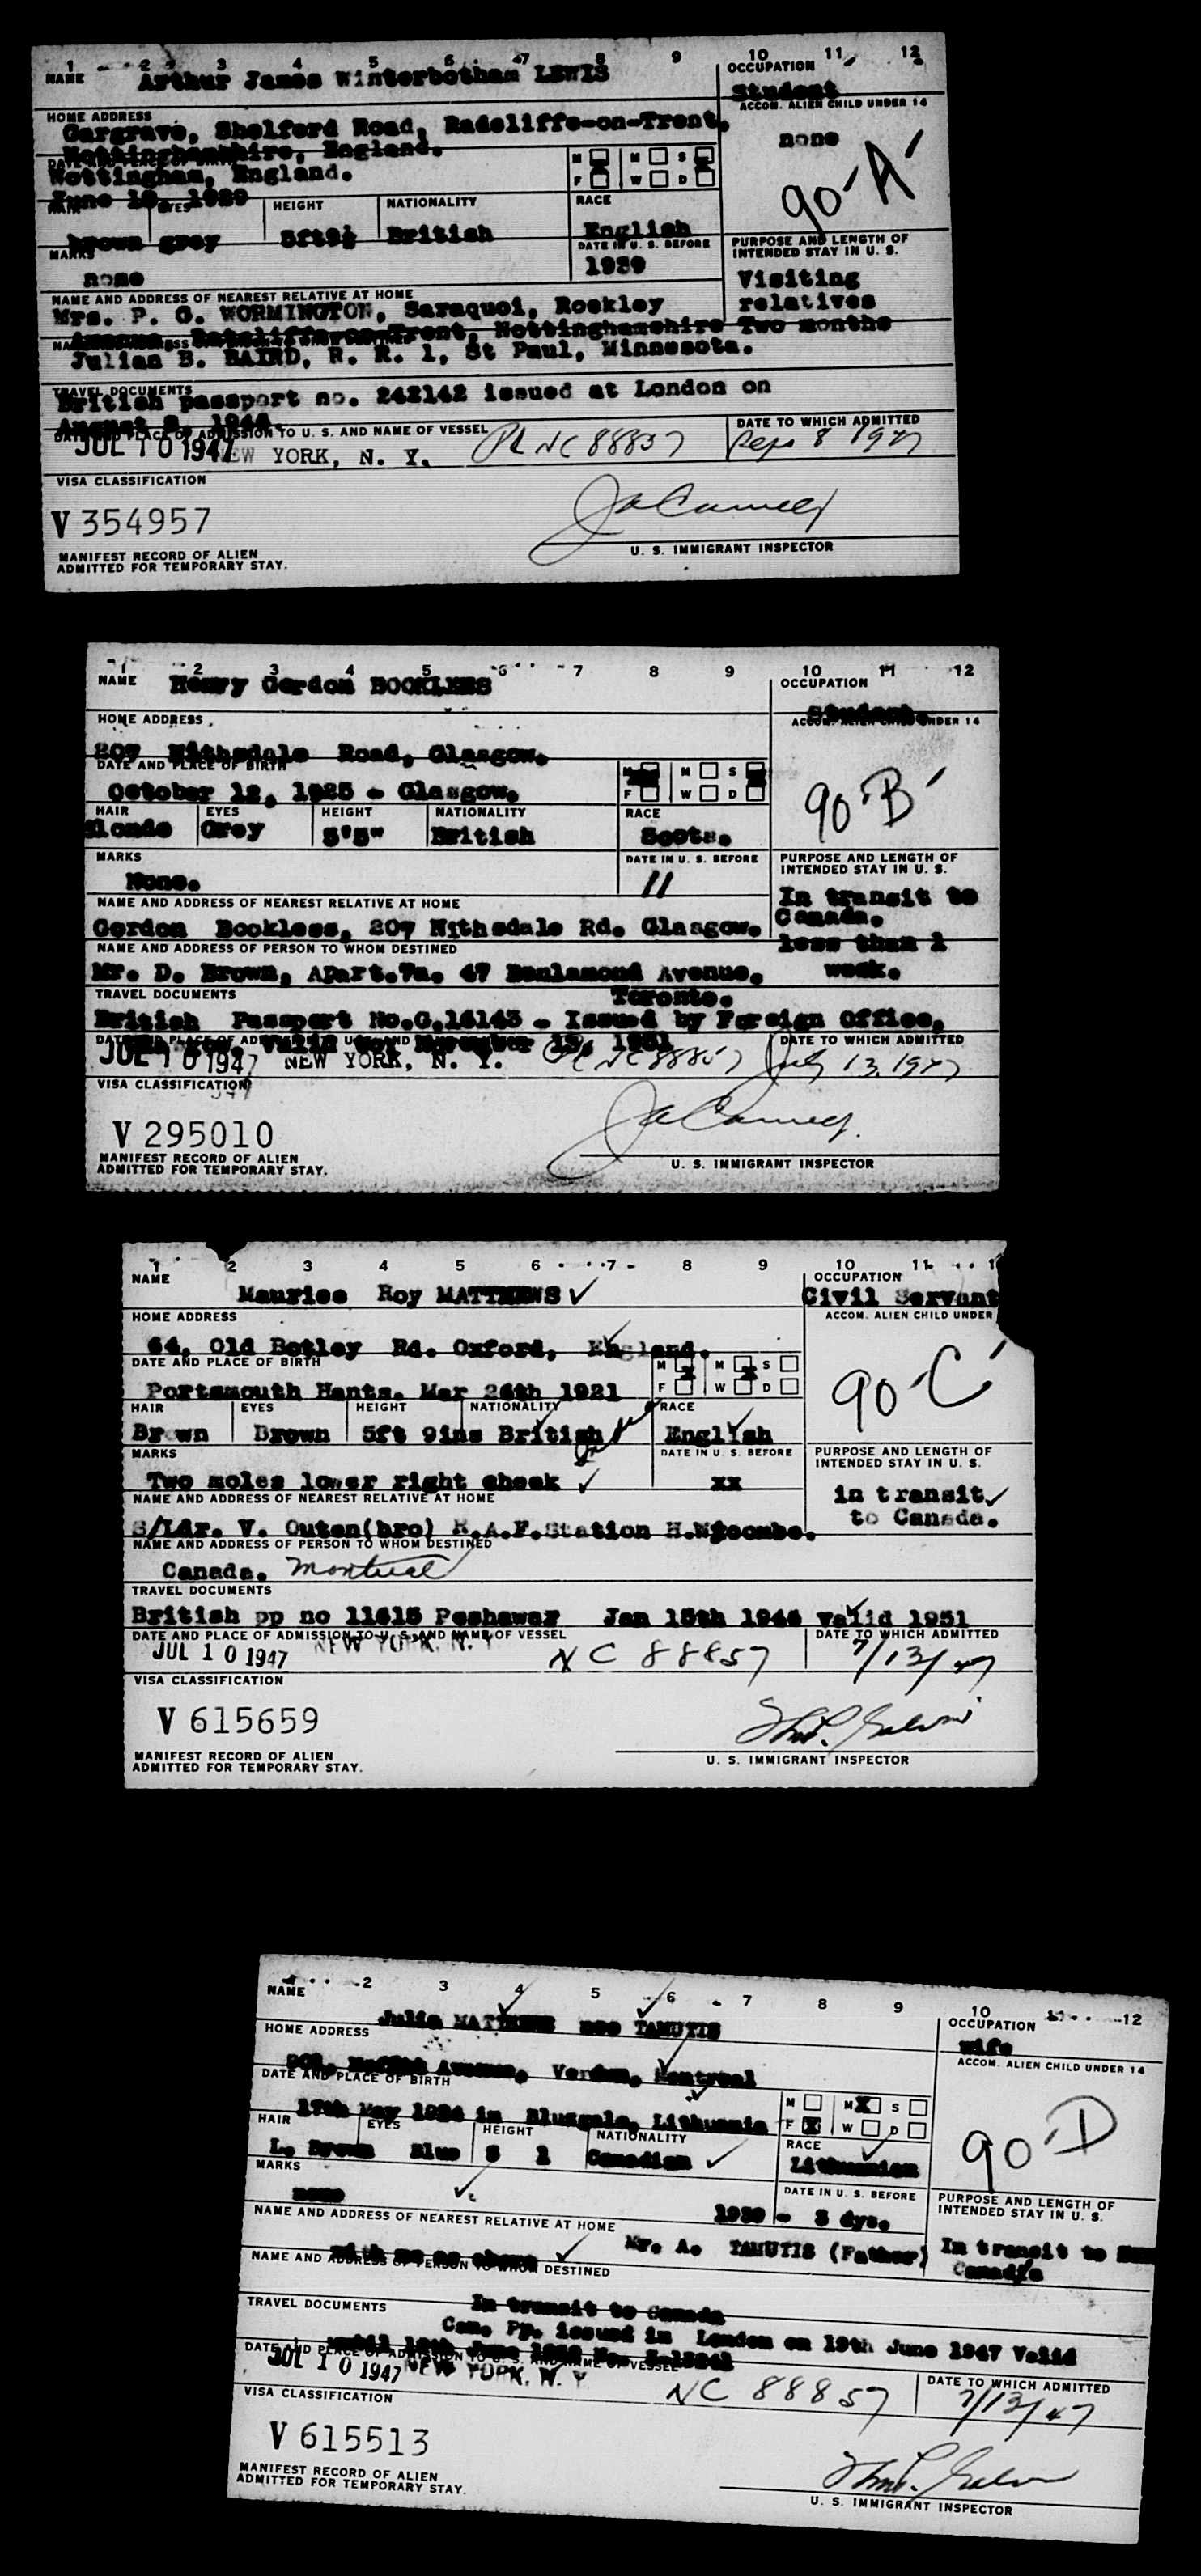 1 2 3 4 5 6 7 8 9 10 11 12
NAME Arthur James Winterbotham LEWIS
OCCUPATION
Student
HOME ADDRESS
ACCOM. ALIEN CHILD UNDER 14
Gargrave, Shelford Road, Radcliffe-on-Trent,
none
Nottinghamshire, England.
Nottingham, England.
M M S
F W D
90-A
June 1929
HAIR EYES HEIGHT NATIONALITY RACE
brown grey 5ft9½ British English
MARKS
DATE IN U. S. BEFORE
none
1939
PURPOSE AND LENGTH OF
INTENDED STAY IN U. S.
Visiting
relatives
Two months
NAME AND ADDRESS OF NEAREST RELATIVE AT HOME
Mrs. P. G. WORMINGTON, Saraquoi, Rockley
Avenue, Radcliffe-on-Trent, Nottinghamshire
Julian B. BAIRD, R. R. 1, St Paul, Minnesota.
TRAVEL DOCUMENTS
British passport no. 242142 issued at London on
August 1946.
DATE AND PLACE OF ADMISSION TO U. S. AND NAME OF VESSEL
DATE TO WHICH ADMITTED
JUL 10 1947 NEW YORK, N. Y. NC 88857 Sept 8 1947
VISA CLASSIFICATION
V 354957
MANIFEST RECORD OF ALIEN
ADMITTED FOR TEMPORARY STAY.
U. S. IMMIGRANT INSPECTOR
1 2 3 4 5 6 7 8 9 10 11 12
NAME Henry Gordon BOOKLESS
OCCUPATION
Student.
HOME ADDRESS
ACCOM. ALIEN CHILD UNDER 14
207 Nithsdale Road, Glasgow.
DATE AND PLACE OF BIRTH
M M S
F W D
90-B
October 12, 1925 - Glasgow.
HAIR EYES HEIGHT NATIONALITY RACE
Blonde Grey 5'5" British Scots.
MARKS
DATE IN U. S. BEFORE
None.
//
PURPOSE AND LENGTH OF
INTENDED STAY IN U. S.
In transit to
Canada.
less than 1
week.
NAME AND ADDRESS OF NEAREST RELATIVE AT HOME
Gordon Bookless, 207 Nithsdale Rd. Glasgow.
NAME AND ADDRESS OF PERSON TO WHOM DESTINED
Mr. D. Brown, Apart.7a. 47 Avenue,
Toronto.
TRAVEL DOCUMENTS
British Passport No.G.16143 - Issued by Foreign Office,
November 1951
DATE AND PLACE OF ADMISSION TO U. S. AND
DATE TO WHICH ADMITTED
JUL 10 1947 NEW YORK, N. Y. NC 88857 July 13, 1947
VISA CLASSIFICATION
V 295010
MANIFEST RECORD OF ALIEN
ADMITTED FOR TEMPORARY STAY.
U. S. IMMIGRANT INSPECTOR
1 2 3 4 5 6 7 8 9 10 11
NAME
Maurice Roy MATTHEWS
OCCUPATION
Civil Servant
HOME ADDRESS
ACCOM. ALIEN CHILD UNDER
64, Old Botley Rd. Oxford, England.
DATE AND PLACE OF BIRTH
M M S
F W D
90-C
Portsmouth Hants. Mar 24th 1921
HAIR EYES HEIGHT NATIONALITY RACE
Brown Brown 5ft 9ins British English
MARKS
DATE IN U. S. BEFORE
Two moles lower right cheek
xx
PURPOSE AND LENGTH OF
INTENDED STAY IN U. S.
in transit
to Canada.
NAME AND ADDRESS OF NEAREST RELATIVE AT HOME
S/Ldr. V. Outen(bro) R.A.F.Station H.Wycombe.
NAME AND ADDRESS OF PERSON TO WHOM DESTINED
Canada. Montreal
TRAVEL DOCUMENTS
British pp no 11615 Peshawar Jan 15th 1946 valid 1951
DATE AND PLACE OF ADMISSION TO U. S. AND NAME OF VESSEL
DATE TO WHICH ADMITTED
JUL 10 1947 NEW YORK, N. Y. NC 88857 7/13/47
VISA CLASSIFICATION
V 615659
MANIFEST RECORD OF ALIEN
ADMITTED FOR TEMPORARY STAY.
U. S. IMMIGRANT INSPECTOR
2 3 4 5 6 7 8 9 10 12
NAME
Julia MATTHEWS nee TAMUTIS
OCCUPATION
wife
HOME ADDRESS
ACCOM. ALIEN CHILD UNDER 14
Moffat Avenue, Verdun, Montreal
DATE AND PLACE OF BIRTH
M M S
F W D
90-D
17th May 1924 in Lithuania
HAIR EYES HEIGHT NATIONALITY RACE
L. Brown Blue 5 1 Canadian Lithuanian
MARKS
DATE IN U. S. BEFORE
none
1939 - 3 dys.
PURPOSE AND LENGTH OF
INTENDED STAY IN U. S.
In transit to
Canada
NAME AND ADDRESS OF NEAREST RELATIVE AT HOME
Mr. A. TAMUTIS (Father)
as above
NAME AND ADDRESS OF PERSON TO WHOM DESTINED
In transit to Canada
TRAVEL DOCUMENTS
Can. Pp. issued in London on 19th June 1947 Valid
until June
DATE AND PLACE OF ADMISSION TO U. S. AND NAME OF VESSEL
DATE TO WHICH ADMITTED
JUL 10 1947 NEW YORK, N. Y. NC 88857 7/13/47
VISA CLASSIFICATION
V 615513
MANIFEST RECORD OF ALIEN
ADMITTED FOR TEMPORARY STAY.
U. S. IMMIGRANT INSPECTOR